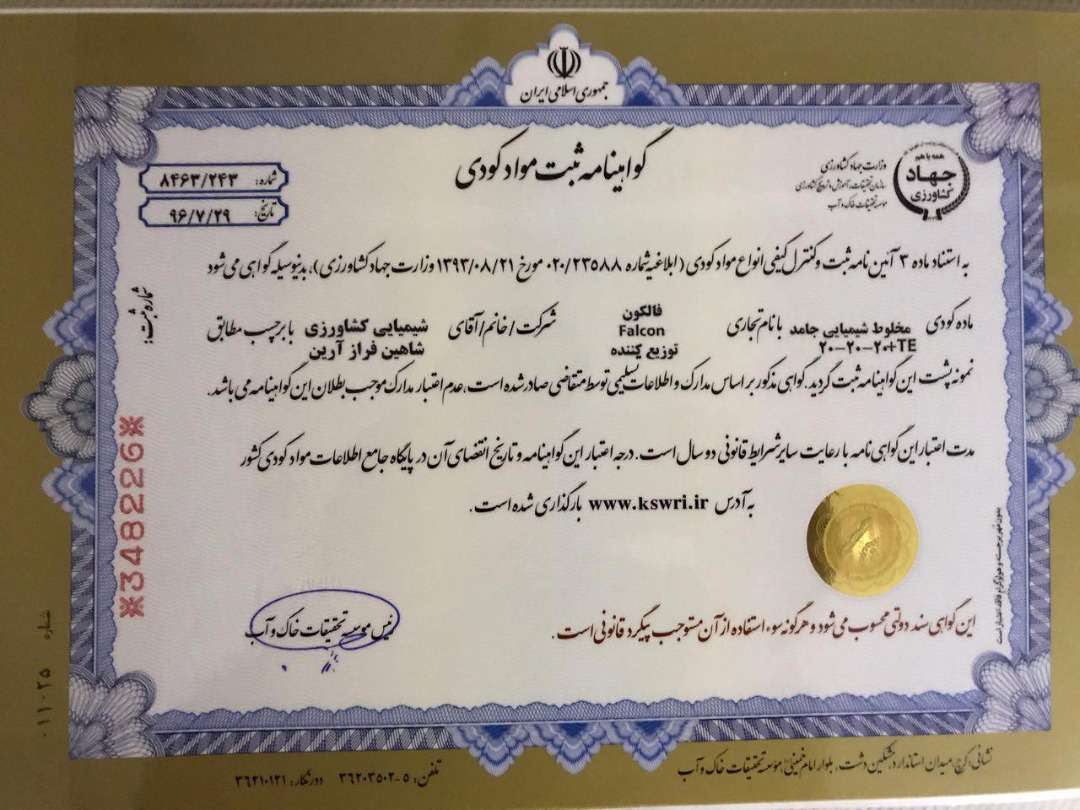 جمهوری اسلامی ایران
همه با هم
جهاد
کشاورزی
وزارت جهاد کشاورزی
سازمان تحقیقات، آموزش و ترویج کشاورزی
موسسه تحقیقات خاک و آب
گواهینامه ثبت مواد کودی
شماره: ۸۴۶۳/۲۴۳
تاریخ: ۹۶/۷/۲۹
به استناد ماده ۳ آئین نامه ثبت و کنترل کیفی انواع مواد کودی (ابلاغیه شماره ۰۲۰/۲۳۵۸۸ مورخ ۱۳۹۳/۰۸/۲۱ وزارت جهاد کشاورزی)، بدینوسیله گواهی می شود
ماده کودی مخلوط شیمیایی جامد ۲۰-۲۰-۲۰+TE با نام تجاری فالکون Falcon توزیع کننده شرکت/خانم/آقای شیمیایی کشاورزی شاهین فراز آرین با برچسب مطابق
نمونه پشت این گواهینامه ثبت گردید. گواهی مذکور بر اساس مدارک و اطلاعات تسلیمی توسط متقاضی صادر شده است، عدم اعتبار مدارک موجب بطلان این گواهینامه می باشد.
مدت اعتبار این گواهی نامه با رعایت سایر شرایط قانونی دو سال است. درجه اعتبار این گواهینامه و تاریخ انقضای آن در پایگاه جامع اطلاعات مواد کودی کشور
به آدرس www.kswri.ir بارگذاری شده است.
این گواهی سند دولتی محسوب می شود و هرگونه سوء استفاده از آن مستوجب پیگرد قانونی است.
رئیس موسسه تحقیقات خاک و آب
بدون مهر برجسته و هولوگرام فاقد اعتبار است
شماره ثبت:
*348226*
شماره ۰۱۱۰۲۵
نشانی: کرج، میدان استاندارد، مشکین دشت، بلوار امام خمینی، موسسه تحقیقات خاک و آب
تلفن: ۵-۳۶۲۰۳۵۰۲ دورنگار: ۳۶۲۱۰۱۲۱